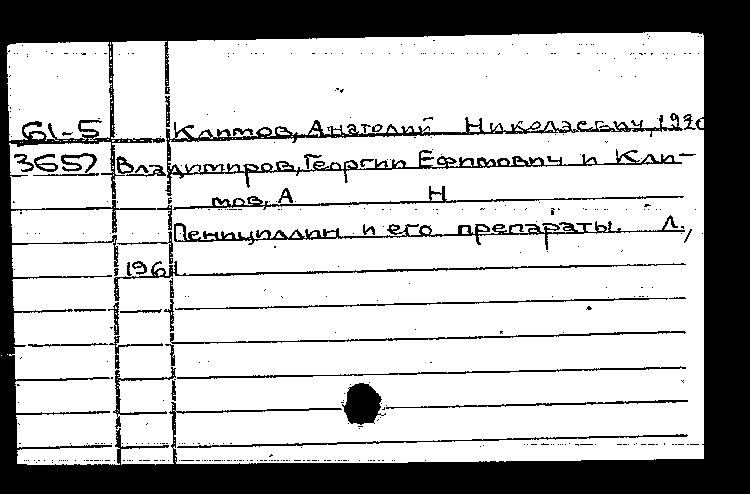 61-5 Климов, Анатолий Николаевич, 1920
3657 Владимиров, Георгий Ефимович и Кли-
мов, А Н
Пенициллин и его препараты. Л.,
1961.